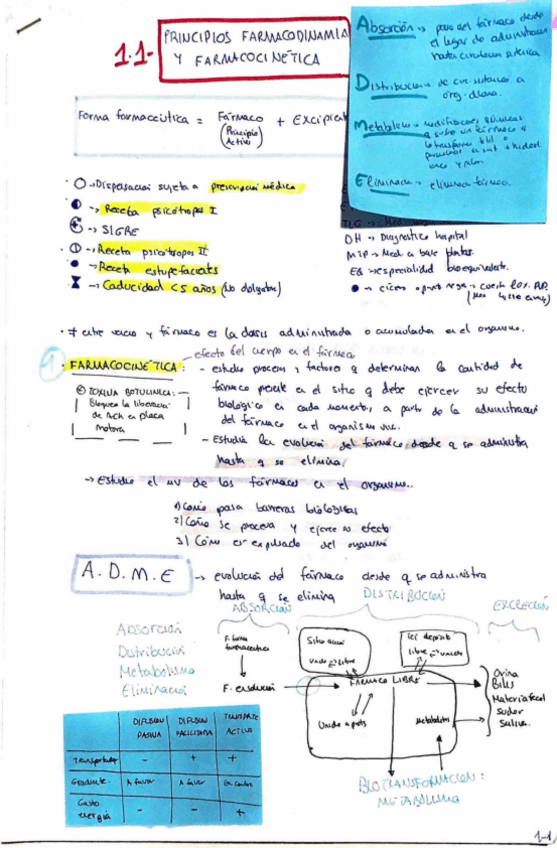 1.1- PRINCIPIOS FARMACODINAMIA
Y FARMACOCINÉTICA
Absorción → paso del fármaco desde
el lugar de administración
hasta circulación sistémica
Distribución → de cir. sistémica a
org. diana.
Metabolismo → modificaciones químicas
q sufre un fármaco q
lo transforma
Eliminación → elimina fármaco.
Forma farmacéutica = Fármaco + Excipient
(Principio
Activo)
→ Dispensación sujeta a prescripción médica
→ Receta psicótropos I
→ SIGRE
→ Receta psicótropos II
→ Receta estupefacientes
→ Caducidad < 5 años (No dolgator)
DH → Diagnóstico hospital
MTP → Med a base plantas.
EQ → especialidad bioequivalente.
≠ entre veneno y fármaco es la dosis administrada o acumulada en el organismo.
efecto del cuerpo en el fármaco
1. FARMACOCINÉTICA:
- estudio procesos y factores q determinan la cantidad de
fármaco presente en el sitio q debe ejercer su efecto
biológico en cada momento, a partir de la administración
del fármaco en el organismo vivo.
TOXINA BOTULÍNICA:
Bloquea la liberación
de Ach en placa
motora
- Estudia la evolución del fármaco desde q se administra
hasta q se elimina
→ Estudio el mv de los fármacos en el organismo..
1) Cómo pasa barreras biológicas
2) Cómo se procesa y ejerce su efecto
3) Cómo es expulsado del organismo
A.D.M.E → evolución del fármaco desde q se administra
hasta q se elimina
ABSORCIÓN
DISTRIBUCIÓN
EXCRECIÓN
Absorción
Distribución
Metabolismo
Eliminación
F. forma
farmacéutica
F. en solución
Sitio acción
unido ⇄ libre
Tej depósito
libre ⇄ unido
FÁRMACO LIBRE
Unido a prots
Metabolitos
Orina
Bilis
Materia fecal
Sudor
Saliva.
BIOTRANSFORMACIÓN:
METABOLISMO
DIFUSIÓN PASIVA DIFUSIÓN FACILITADA TRANSPORTE ACTIVO
Transportador - + +
Gradiente A favor A favor En contra
Gasto energía - - +
1-1